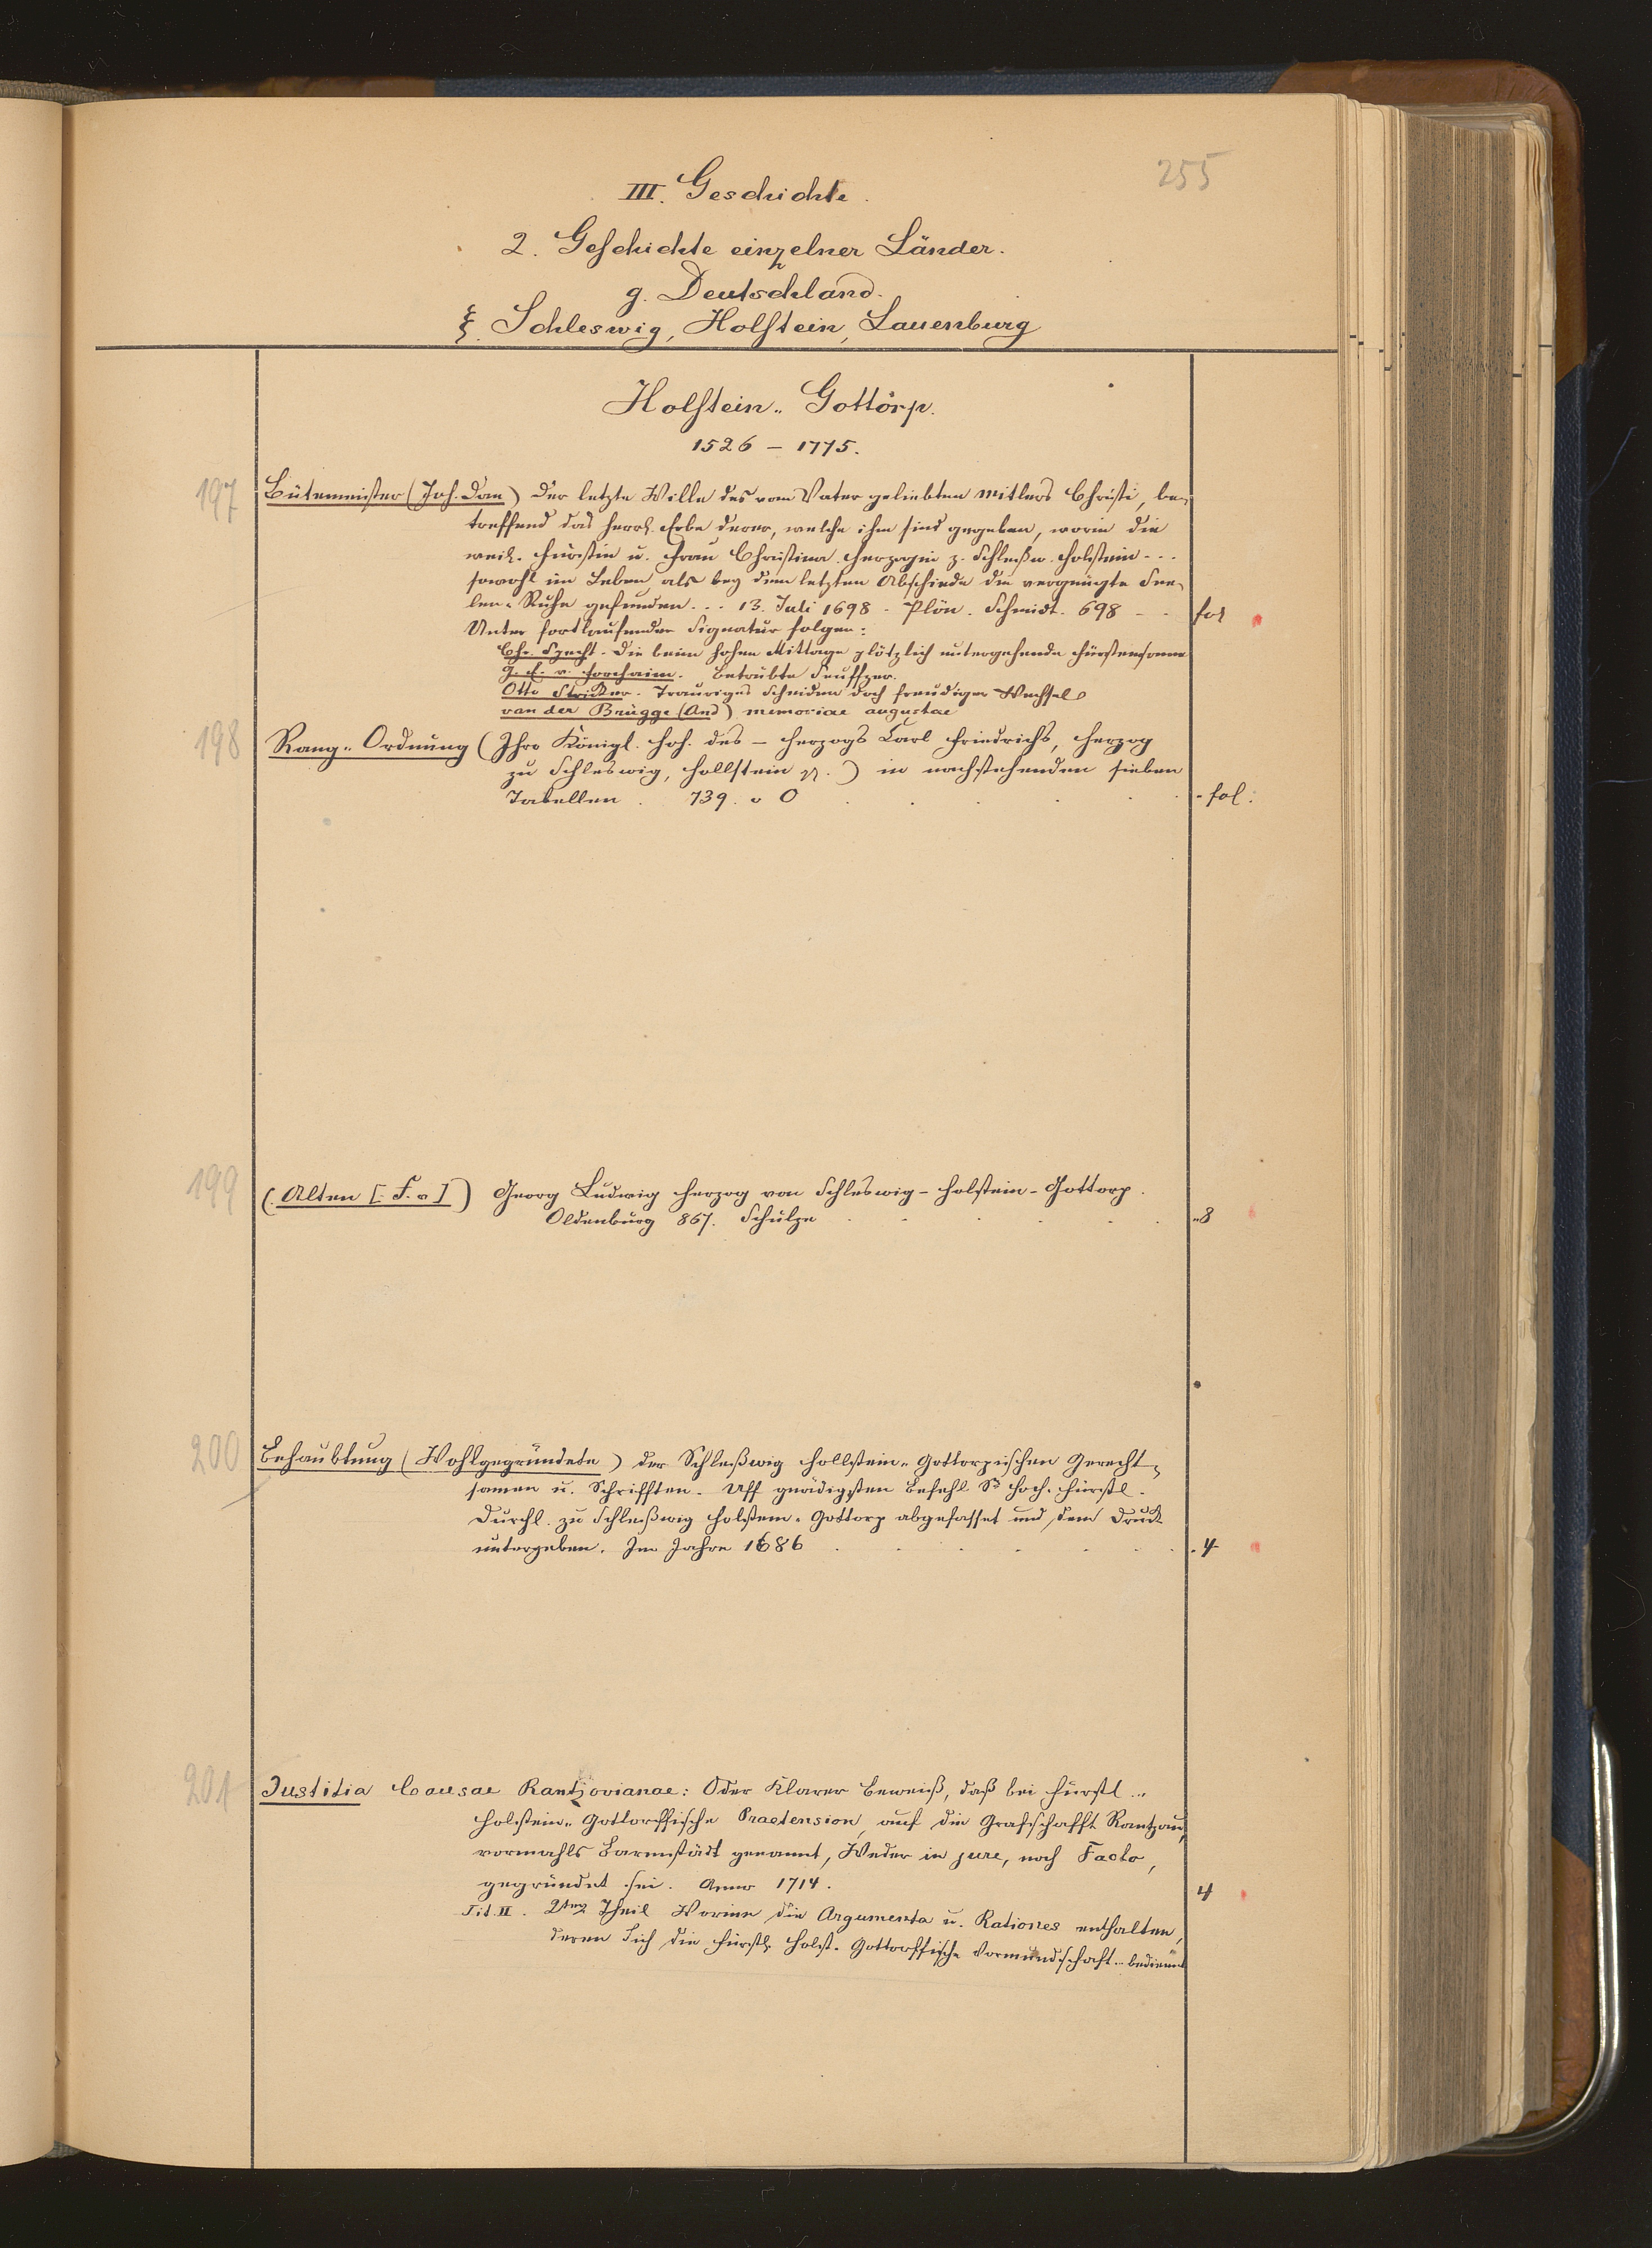 255
III. Geschichte.
2. Geschichte einzelner Länder.
g. Deutschland.
ξ. Schleswig, Holstein, Lauenburg
Holstein-Gottorp.
1526 – 1775.
197 Bütemeister (Joh. Dan) Der letzte Wille des vom Vater geliebten Mitlers Christi, be-
treffend das herrl. Erbe derer, welche ihm sind gegeben, worin die
weil. Fürstin u. Frau Christina Herzogin z. Schleßw. Holstein . . .
sowohl im Leben als bey dem letzten Abschiede die vergnügte See-
len-Ruhe gefunden . . . 13. Juli 1698 - Plön. Schmidt. 698 - - fol
Unter fortlaufender Signatur folgen:
Chr. Specht. Die beim hohen Mittage plötzlich untergehende Fürstensonne
v. Forcheim. Betrübte Seuffzer.
Otto Stricker. Trauriges Scheiden doch freudiger Wechsel
van der Brügge (And) memoriae augustae
198 Rang-Ordnung (Ihro Königl. Hoh. des – Herzogs Carl Friedrichs, Herzog
zu Schleswig, Hollstein pp.) in nachstehenden sieben
Tabellen. 739. o O . . . . . fol.
199 (Alten [F. v]) Georg Ludwig Herzog von Schleswig-Holstein-Gottorp.
Oldenburg 867. Schulze . . . . . 8
200 Behaubtung (Wohlgegründete) der Schleßwig Hollstein-Gottorpischen Gerecht-
samen u. Schrifften. Uff gnädigsten Befehl Sr Hoch-Fürstl.
Durchl. zu Schleßwig Holstein-Gottorp abgefasset und dem Druck
untergeben. Im Jahre 1686 . . . . . . 4
201 Justitia Causae Rantzovianae: Oder Klarer Beweiß, daß bei Fürstl.
Holstein-Gottorffische Praetension, auf die Grafschafft Rantzau,
vormahls Barmstädt genannt, Weder in jure, noch Facto,
gegründet sei. Anno 1714. 4
Tit. II. 2ter Theil Worinn die Argumenta u. Rationes enthalten,
deren Sich die Fürstl. Holst. Gottorffische Vormundschaft . . bedienet